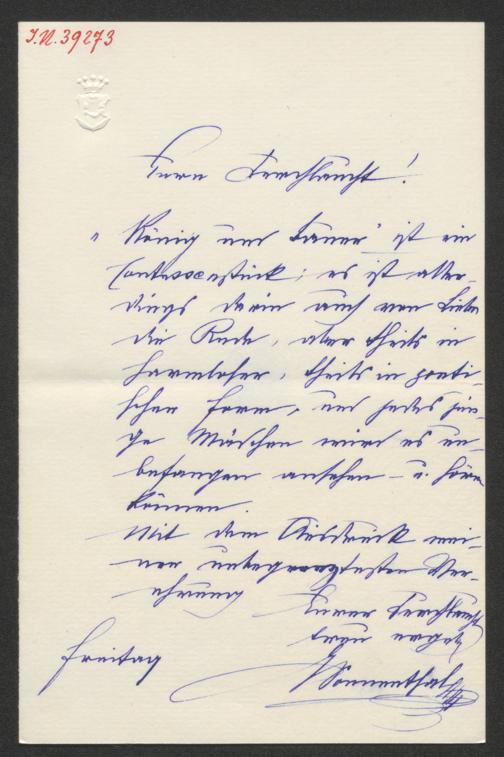 I.N. 39273
Euere Durchlaucht!
"König und Bauer" ist ein
Contessenstück; es ist aller-
dings darin auch von Liebe
die Rede, aber theils in
harmloser, theils in poeti-
scher Form, und jedes jun-
ge Mädchen wird es un-
befangen ansehen – u. hören
können.
Mit dem Ausdruck mei-
ner unbegrenztesten Ver-
ehrung
Eurer Durchlaucht
treu ergeb
Freitag
Sonnenthal